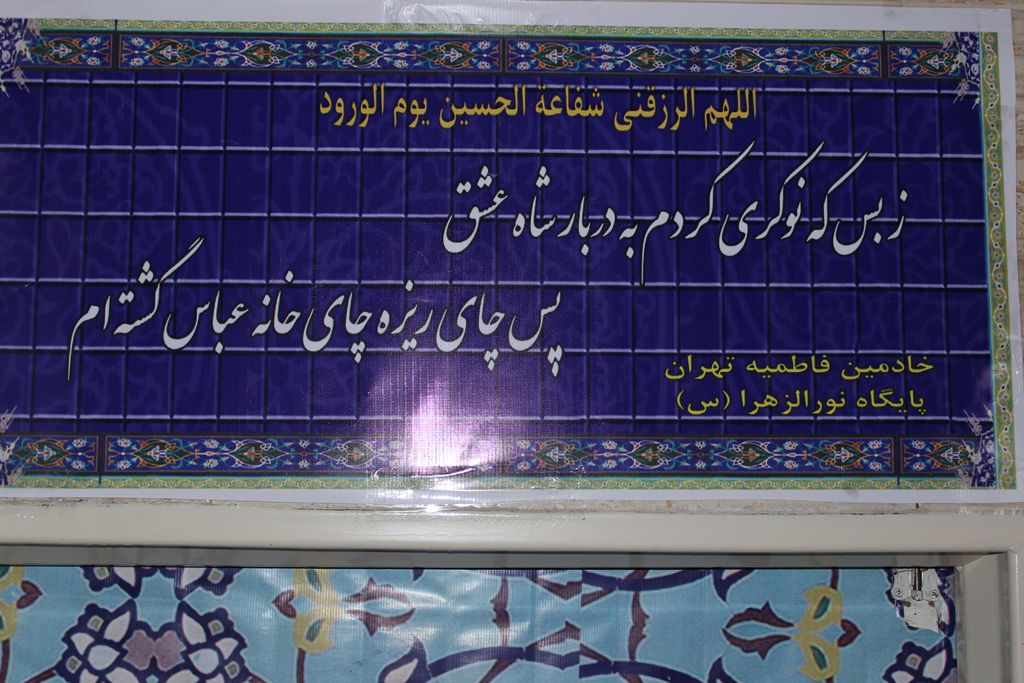 اللهم الرزقنی شفاعة الحسین یوم الورود
ز بس که نوکری کردم به دربار شاه عشق
پس چای ریزه چای خانه عباس گشته ام
خادمین فاطمیه تهران
پایگاه نورالزهرا (س)